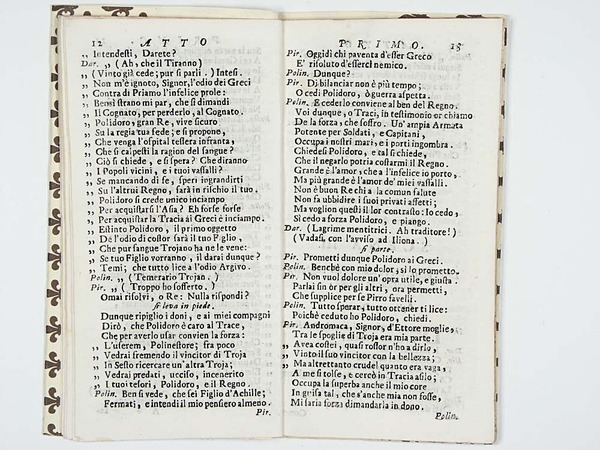 12 ATTO
„ Intendesti, Darete?
Dar. „ (Ah, che il Tiranno)
„ (Vinto già cede; pur si parli.) Intesi.
„ Non m'è ignoto, Signor, l'odio dei Greci
„ Contra di Priamo l'infelice prole:
„ Bensì strano mi par, che si dimandi
„ Il Cognato, per perderlo, al Cognato.
„ Polidoro, gran Re, vive sicuro
„ Su la regia tua fede; e si propone,
„ Che venga l'ospital tessera infranta,
„ Che si calpesti la ragion del sangue?
„ Ciò si chiede, e si spera? Che diranno
„ I Popoli vicini, e i tuoi vassalli?
„ Se mancando di fe, speri ingrandirti
„ Su l'altrui Regno, farà in rischio il tuo.
„ Polidoro si crede unico inciampo
„ Per acquistarsi l'Asia? Eh forse forse
„ Per acquistar la Tracia ai Greci è inciampo.
„ Estinto Polidoro, il primo oggetto
„ De l'odio di costor sarà il tuo Figlio,
„ Che pur sangue Trojano ha ne le vene:
„ Se tuo Figlio vorranno, il darai dunque?
„ Temi; che tutto lice a l'odio Argivo.
Polin. „ (Temerario Trojan.)
Pir. „ (Troppo ho sofferto.)
Omai risolvi, o Re: Nulla rispondi?
si leva in piede.
Dunque ripiglio i doni, e ai miei compagni
Dirò, che Polidoro è caro al Trace,
Che per averlo usar convien la forza:
„ L'userem, Polinestore; fra poco
„ Vedrai fremendo il vincitor di Troja
„ In Sesto ricercare un'altra Troja;
„ Vedrai predati, ucciso, incenerito
„ I tuoi tesori, Polidoro, e il Regno.
Polin. Ben si vede, che sei Figlio d'Achille;
Fermati, e intendi il mio pensiero almeno.
Pir.
PRIMO. 13
Pir. Oggidì chi paventa d'esser Greco
E' risoluto d'esserci nemico.
Polin. Dunque?
Pir. Di bilanciar non è più tempo;
O cedi Polidoro, ò guerra aspetta.
Polin. E cederlo conviene al ben del Regno.
Voi dunque, o Traci, in testimonio or chiamo
De la forza, che soffro. Un'ampia Armata
Potente per Soldati, e Capitani,
Occupa i nostri mari, e i porti ingombra.
Chiedesi Polidoro, e tal si chiede,
Che il negarlo potria costarmi il Regno.
Grande è l'amor, che a l'infelice io porto,
Ma più grande è l'amor de' miei vassalli.
Non è buon Re chi a la comun salute
Non fa ubbidire i suoi privati affetti;
Ma voglion questi il lor contrasto: Io cedo,
Sì cedo a forza Polidoro, e piango.
Dar. (Lagrime mentitrici. Ah traditore!)
(Vadasi, con l'avviso ad Iliona.)
si parte.
Pir. Prometti dunque Polidoro ai Greci.
Polin. Benchè con mio dolor, sì lo prometto.
Pir. Non vuol dolore un'opra utile, e giusta.
Parlai sin òr per gli altri, ora permetti,
Che supplice per se Pirro favelli.
Polin. Tutto sperar, tutto ottener ti lice:
Poichè ceduto ho Polidoro, chiedi.
Pir. Andromaca, Signor, d'Ettore moglie,
Tra le spoglie di Troja era mia parte.
„ Avea costei, quasi rossor n'ho a dirlo,
„ Vinto il suo vincitor con la bellezza;
„ Ma altrettanto crudel quanto era vaga,
A me si tolse, e cercò in Tracia asilo;
Occupa la superba anche il mio core
In guisa tal, che s'anche mia non fosse,
Mi saria forza dimandarla in dono.
Polin.